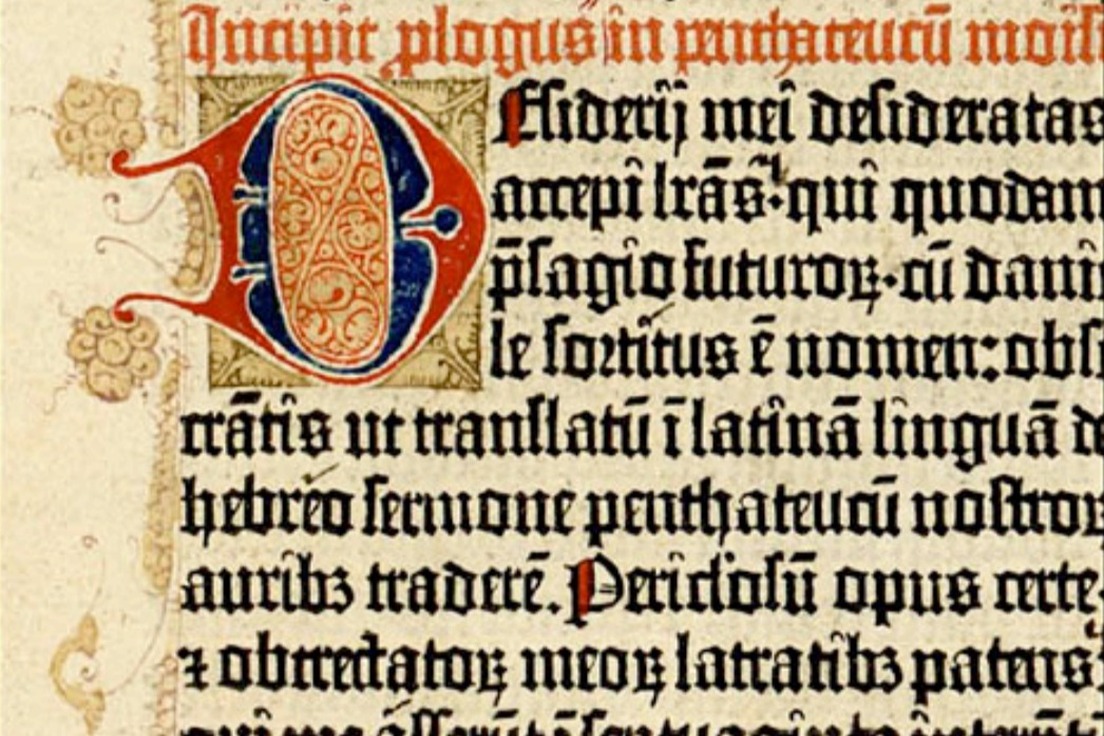 Incipit plogus in penthateucū moisi
DEsiderij mei desideratas
accepi lrās· qui quodam
p̄sagio futuroꝝ·cū dani
le sortitus ē nomen: obs
crātis ut translatū ī latinā linguā de
hebreo sermone penthateucū nostroꝝ
auribꝫ traderē. Periclosū opus certe·
⁊ obtrectatoꝝ meoꝝ latratibꝫ patens
qui me asserūt ī septuaginta interp̄tū